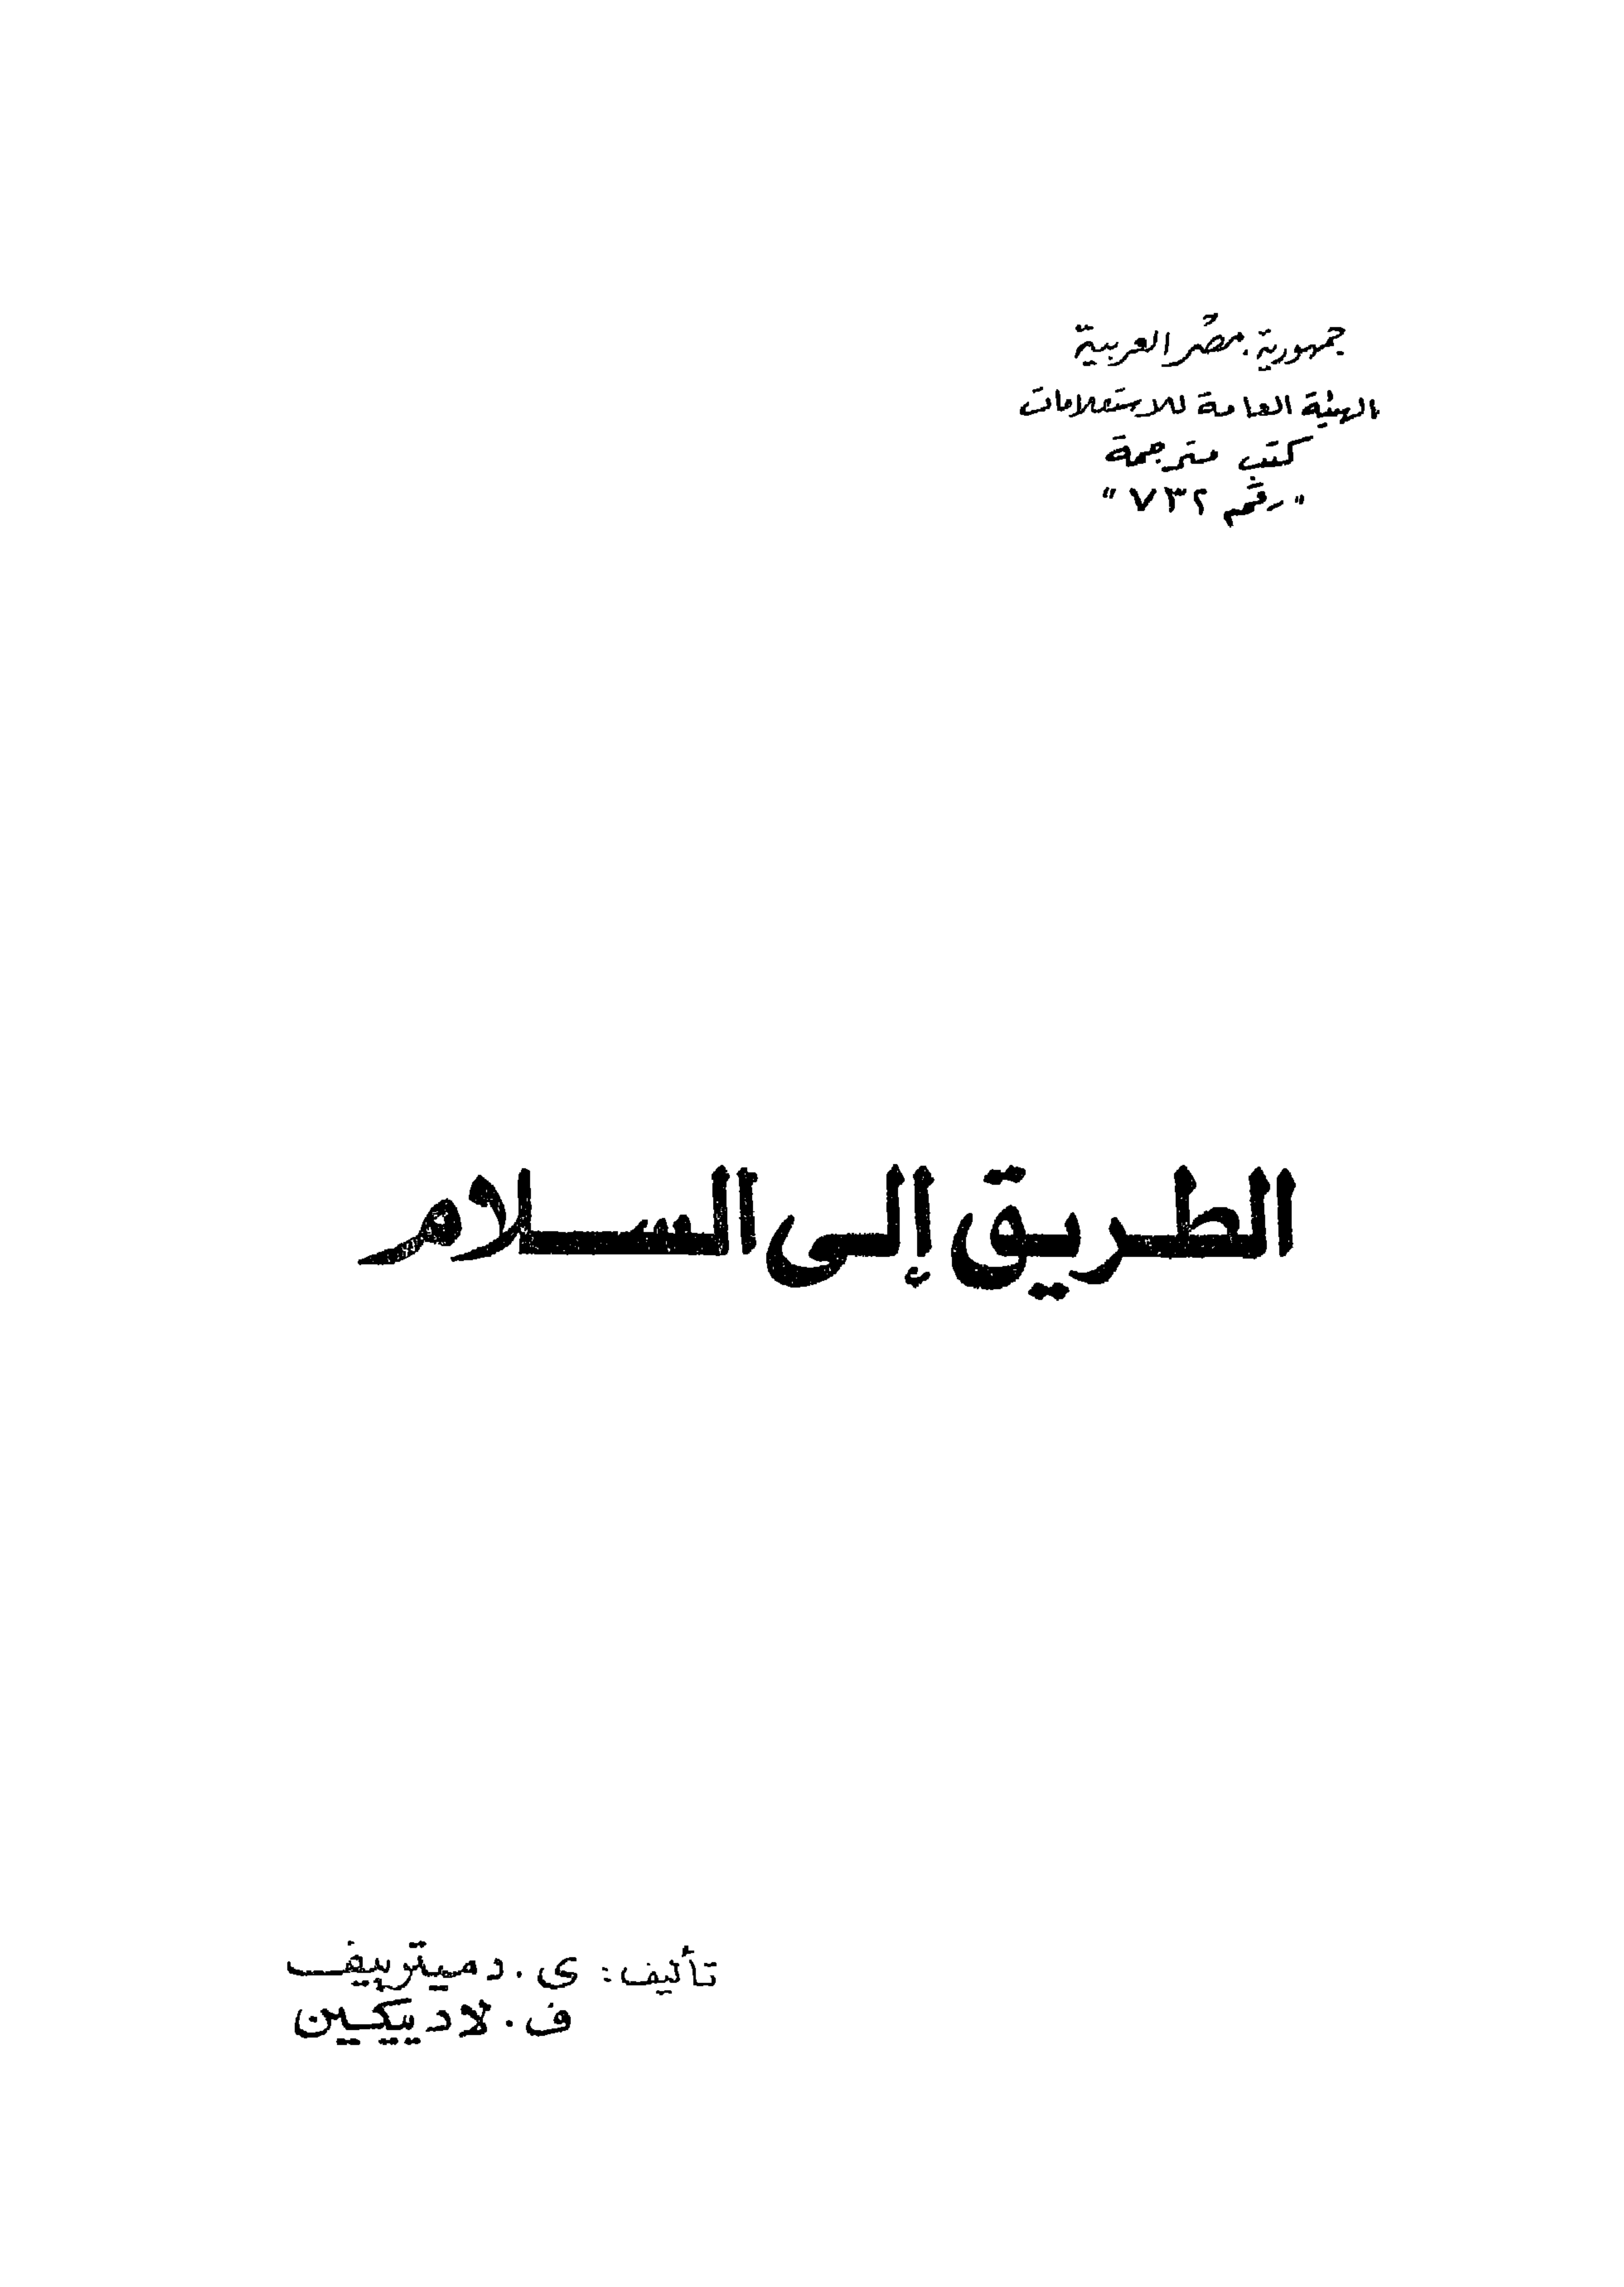 جمهورية مصر العربية
الهيئة العامة للاستعلامات
كتب مترجمة
"رقم ٧٣٢"
الطريق إلى السلام
تأليف: ى. دميترييف
ف. لاديكين